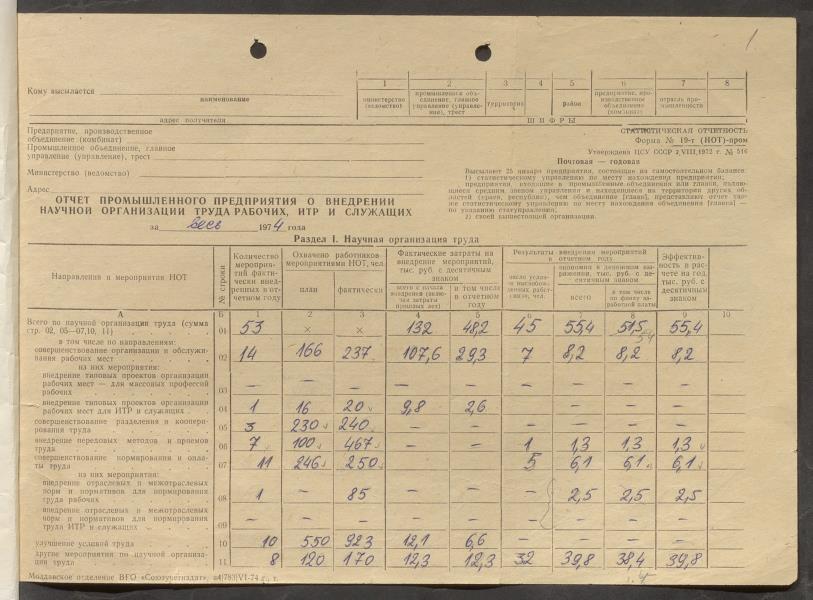 1
Кому высылается
наименование
адрес получателя
1 2 3 4 5 6 7 8
министерство (ведомство)
промышленное объединение, главное управление (управление), трест
территория
район
предприятие, производственное объединение (комбинат)
отрасль промышленности
ШИФРЫ
Предприятие, производственное
объединение (комбинат)
Промышленное объединение, главное
управление (управление), трест
Министерство (ведомство)
Адрес
СТАТИСТИЧЕСКАЯ ОТЧЕТНОСТЬ
Форма № 19-т (НОТ)-пром
Утверждена ЦСУ СССР 2.VIII.1972 г. № 516
Почтовая — годовая
Высылают 25 января предприятия, состоящие на самостоятельном балансе:
1) статистическому управлению по месту нахождения предприятия;
предприятия, входящие в промышленные объединения или главки, являю-
щиеся средним звеном управления и находящиеся на территории других об-
ластей (краев, республик), чем объединение [главк], представляют отчет так-
же статистическому управлению по месту нахождения объединения [главка] —
по указанию статуправления;
2) своей вышестоящей организации.
ОТЧЕТ ПРОМЫШЛЕННОГО ПРЕДПРИЯТИЯ О ВНЕДРЕНИИ
НАУЧНОЙ ОРГАНИЗАЦИИ ТРУДА РАБОЧИХ, ИТР И СЛУЖАЩИХ
за весь 1974 года
Раздел I. Научная организация труда
Направления и мероприятия НОТ
№ строки
Количество мероприятий фактически внедренных в отчетном году
Охвачено работников мероприятиями НОТ, чел.
план
фактически
Фактические затраты на внедрение мероприятий, тыс. руб. с десятичным знаком
всего с начала внедрения (включая затраты прошлых лет)
в том числе в отчетном году
Результаты внедрения мероприятий отчетном году
число условно высвобожденных работников, чел.
экономия в денежном выражении, тыс. руб. с десятичным знаком
всего
в том числе по фонду заработной платы
Эффективность в расчете на год, тыс. руб. с десятичным знаком
А Б 1 2 3 4 5 6 7 8 9 10
Всего по научной организации труда (сумма
стр. 02, 05—07,10, 11) 01 53 × × 132 48,2 45 55,4 51,5 55,4
в том числе по направлениям:
совершенствование организации и обслужи-
вания рабочих мест 02 14 166 237 107,6 29,3 7 8,2 8,2 8,2
из них мероприятия:
внедрение типовых проектов организации
рабочих мест — для массовых профессий
рабочих 03 — — — — — — — — —
внедрение типовых проектов организации
рабочих мест для ИТР и служащих 04 1 16 20 9,8 2,6 — — —
совершенствование разделения и коопери-
рования труда 05 3 230 240 — — — — — —
внедрение передовых методов и приемов
труда 06 7 100 467 — — 1 1,3 1,3 1,3
совершенствование нормирования и опла-
ты труда 07 11 246 250 5 6,1 6,1 6,1
из них мероприятия:
внедрение отраслевых и межотраслевых
норм и нормативов для нормирования
труда рабочих 08 1 — 85 — — — 2,5 2,5 2,5
внедрение отраслевых и межотраслевых
норм и нормативов для нормирования
труда ИТР и служащих 09 — — — — — — — — —
улучшение условий труда 10 10 550 923 12,1 6,6 — — — —
другие мероприятия по научной организа-
ции труда 11 8 120 170 12,3 12,3 32 39,8 38,4 39,8
Молдавское отделение ВГО «Союзучетиздат»